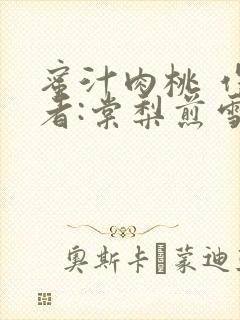 蜜汁肉桃 作
者:棠梨煎雪
奥斯卡 蒙迪